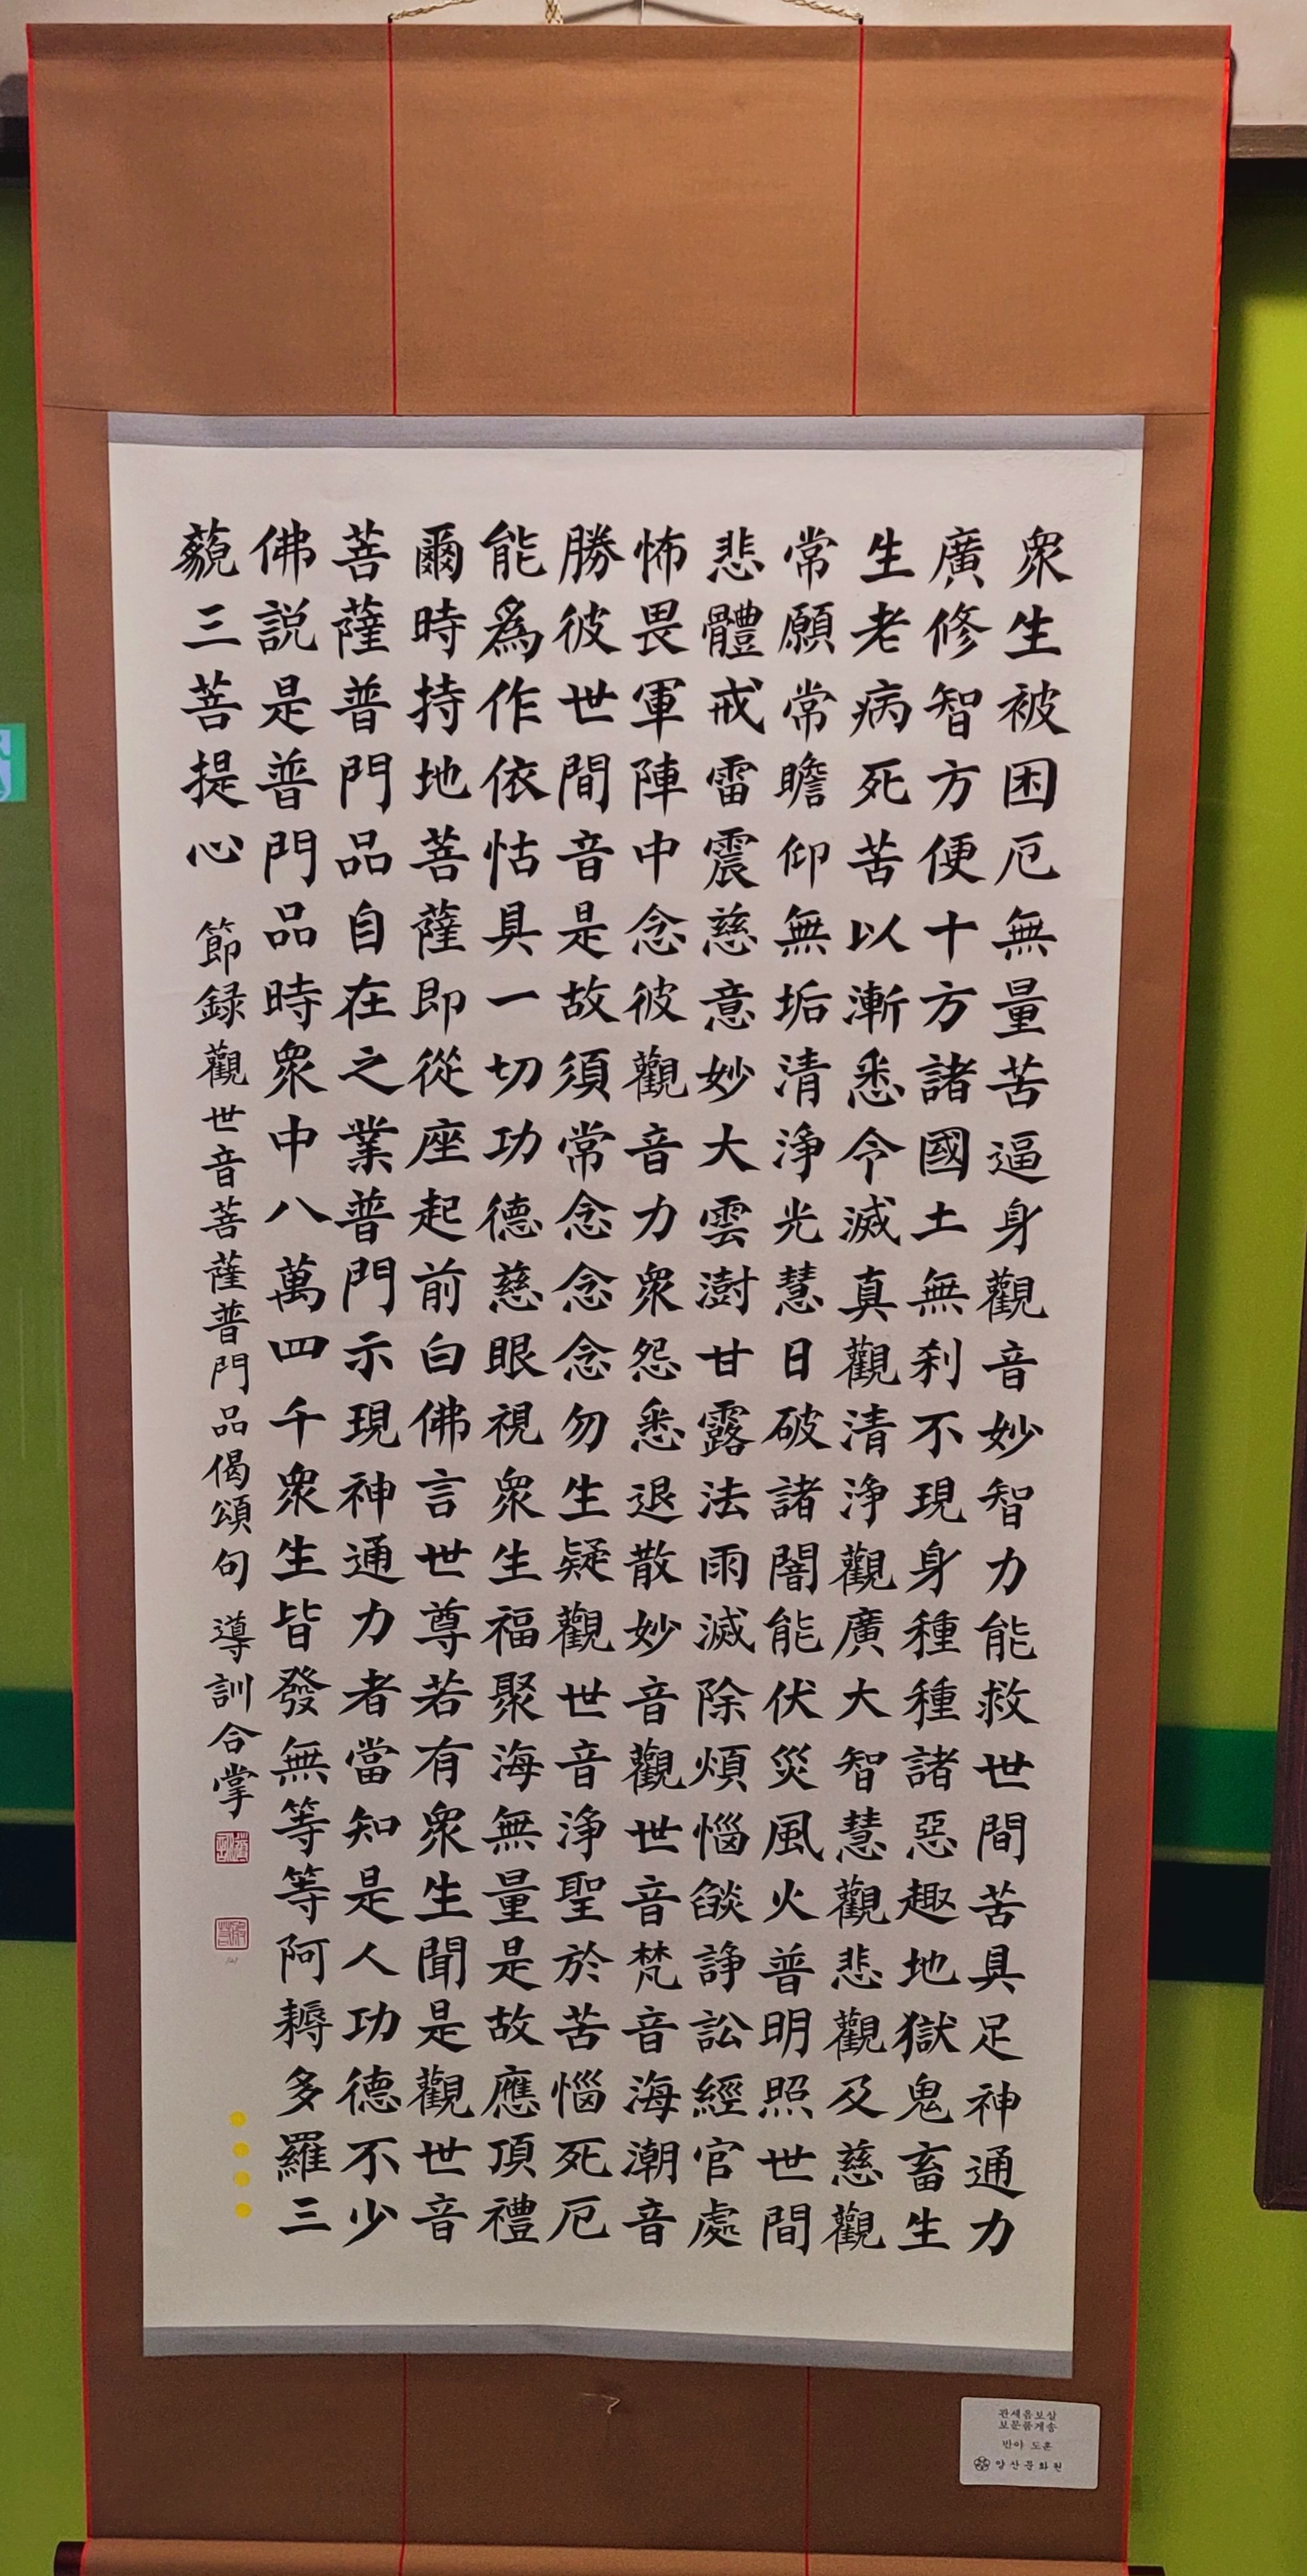 衆生被困厄無量苦逼身觀音妙智力能救世間苦具足神通力
廣修智方便十方諸國土無刹不現身種種諸惡趣地獄鬼畜生
生老病死苦以漸悉令滅真觀清浄觀廣大智慧觀悲觀及慈觀
常願常瞻仰無垢清浄光慧日破諸闇能伏災風火普明照世間
悲體戒雷震慈意妙大雲澍甘露法雨滅除煩惱燄諍訟經官處
怖畏軍陣中念彼觀音力衆怨悉退散妙音觀世音梵音海潮音
勝彼世間音是故須常念念念勿生疑觀世音浄聖於苦惱死厄
能爲作依怙具一切功德慈眼視衆生福聚海無量是故應頂禮
爾時持地菩薩即從座起前白佛言世尊若有衆生聞是觀世音
菩薩普門品自在之業普門示現神通力者當知是人功德不少
佛説是普門品時衆中八萬四千衆生皆發無等等阿耨多羅三
藐三菩提心 節録觀世音菩薩普門品偈頌句 導訓合掌
관세음보살
보문품게송
반야 도훈
양산문화원